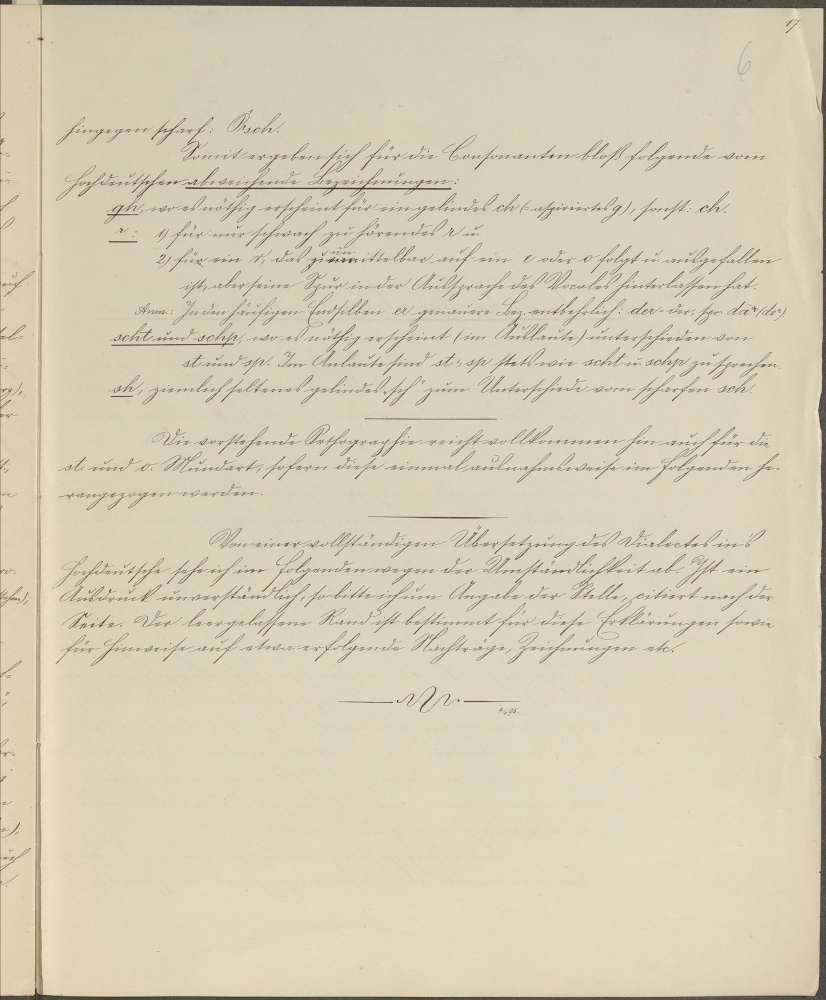 17.
6
hingegen scharf: Rsch.
Somit ergeben sich für die Consonanten bloß folgende vom
Hochdeutschen abweichende Bezeichnungen:
gh, wo es nöthig erscheint für ein gelindes ch (= aspiriertes g), sonst: ch.
r: 1) für nur schwach zu hörendes r u.
2) für ein r, das unmittelbar auf ein e oder o folgt u. ausgefallen
ist, aber seine Spur in der Aussprache des Vocales hinterlassen hat.
Anm.: In den häufigen Endsilben er genauere Bez. entbehrlich: der - der, spr. dar (der)
scht und schp, wo es nöthig erscheint (im Auslaute) unterschieden von
st und sp. Im Anlaute sind st u. sp stets wie scht u. schp zu sprechen.
sh, ziemlich seltenes gelindes „sch" zum Unterschiede vom scharfen sch.
Die vorstehende Orthographie reicht vollkommen hin auch für die
st. und o. Mundart, sofern diese einmal ausnahmsweise im folgenden he-
rangezogen werden.
Von einer vollständigen Übersetzung des Dialectes in's
Hochdeutsche sehe ich im Folgenden wegen der Umständlichkeit ab. Ist ein
Ausdruck unverständlich, so bitte ich um Angabe der Stelle, citiert nach der
Seite. Der leergelassene Rand ist bestimmt für diese Erklärungen sowie
für Hinweise auf etwa erfolgende Nachträge, Zeichnungen etc.